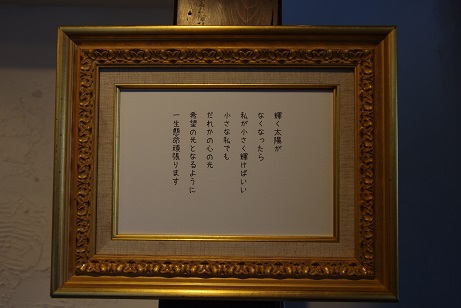 輝く太陽が
なくなったら
私が小さく輝けばいい
小さな私でも
だれかの心の光
希望の光となるように
一生懸命頑張ります